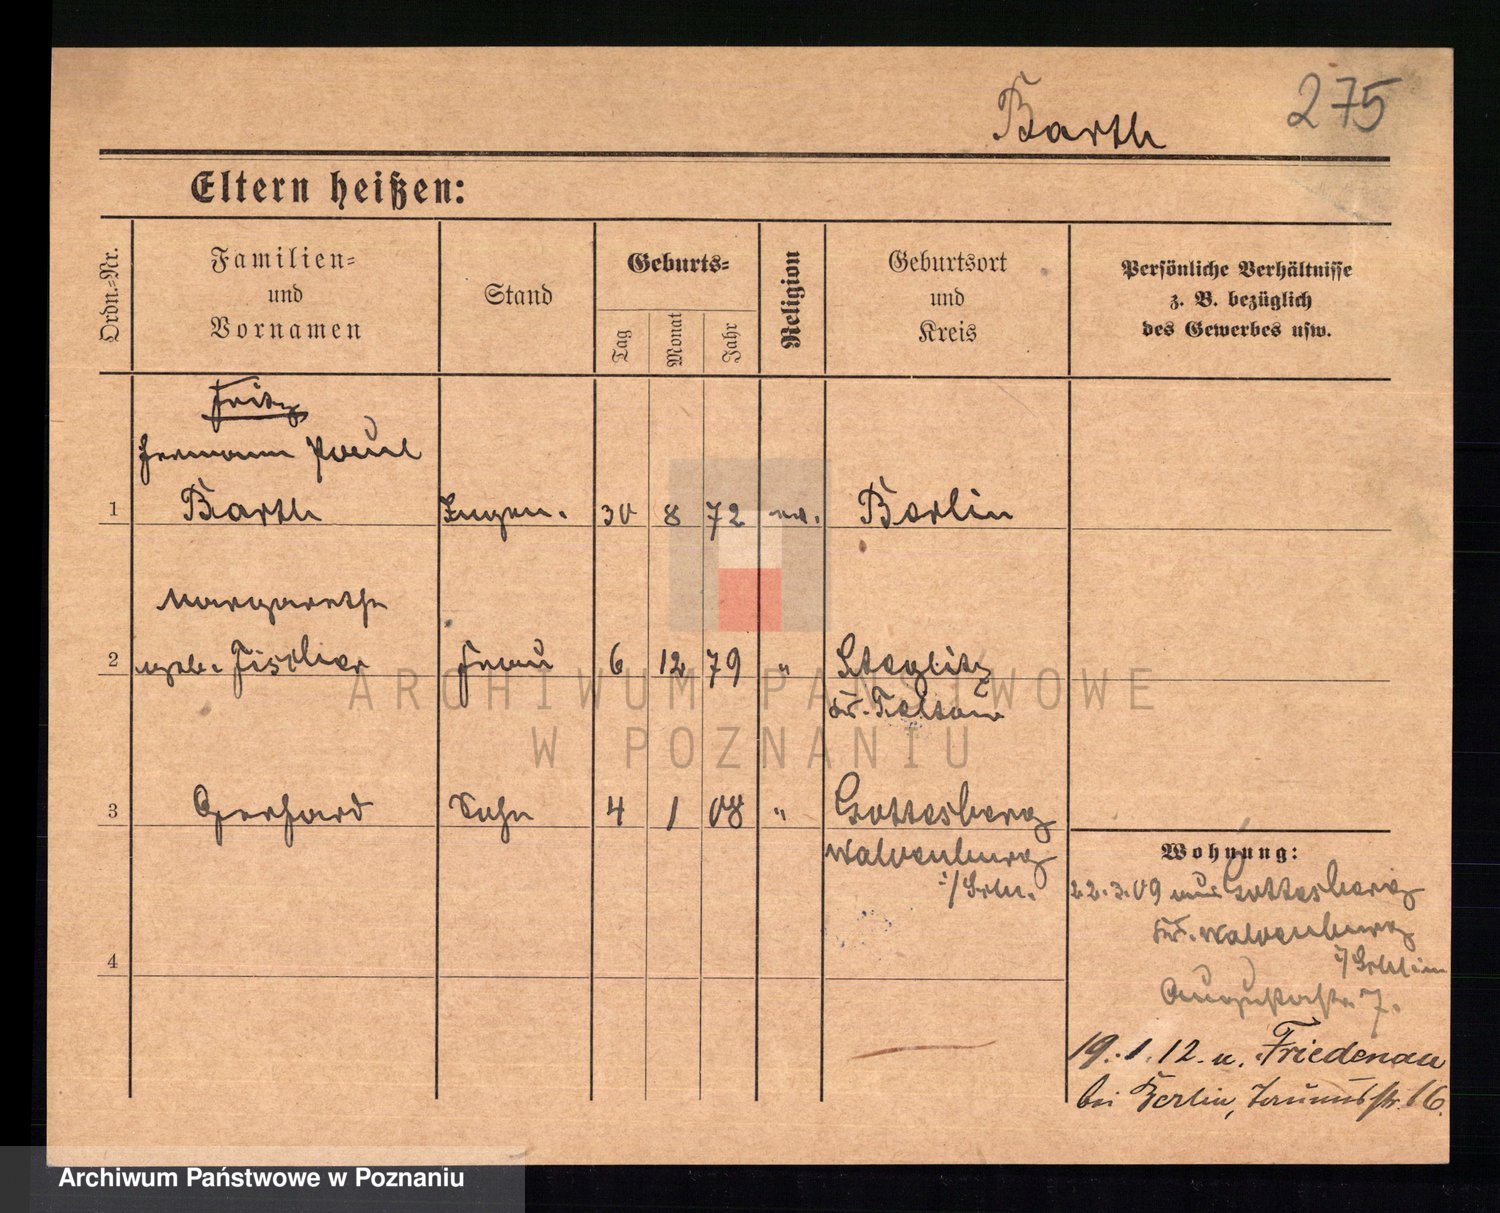 Barth
275
Eltern heißen:
Ordn.-Nr.
Familien-
und
Vornamen
Stand
Geburts-
Tag
Monat
Jahr
Religion
Geburtsort
und
Kreis
Persönliche Verhältnisse
z. B. bezüglich
des Gewerbes usw.
Fritz
Hermann Paul
1 Barth Ingen. 30 8 72 ev. Berlin
Margarethe
2 geb. Fischer Frau 6 12 79 " Steglitz
Kr. Teltow
3 Gerhard Sohn 4 1 08 " Gottesberg
Waldenburg
i/Schl.
4
Wohnung:
22.3.09 aus Gottesberg
Kr. Waldenburg
i/Schlesien
Augustastr. 7.
19.1.12. n. Friedenau
bei Berlin, Taunusstr. 16.
ARCHIWUM PAŃSTWOWE
W POZNANIU
Archiwum Państwowe w Poznaniu